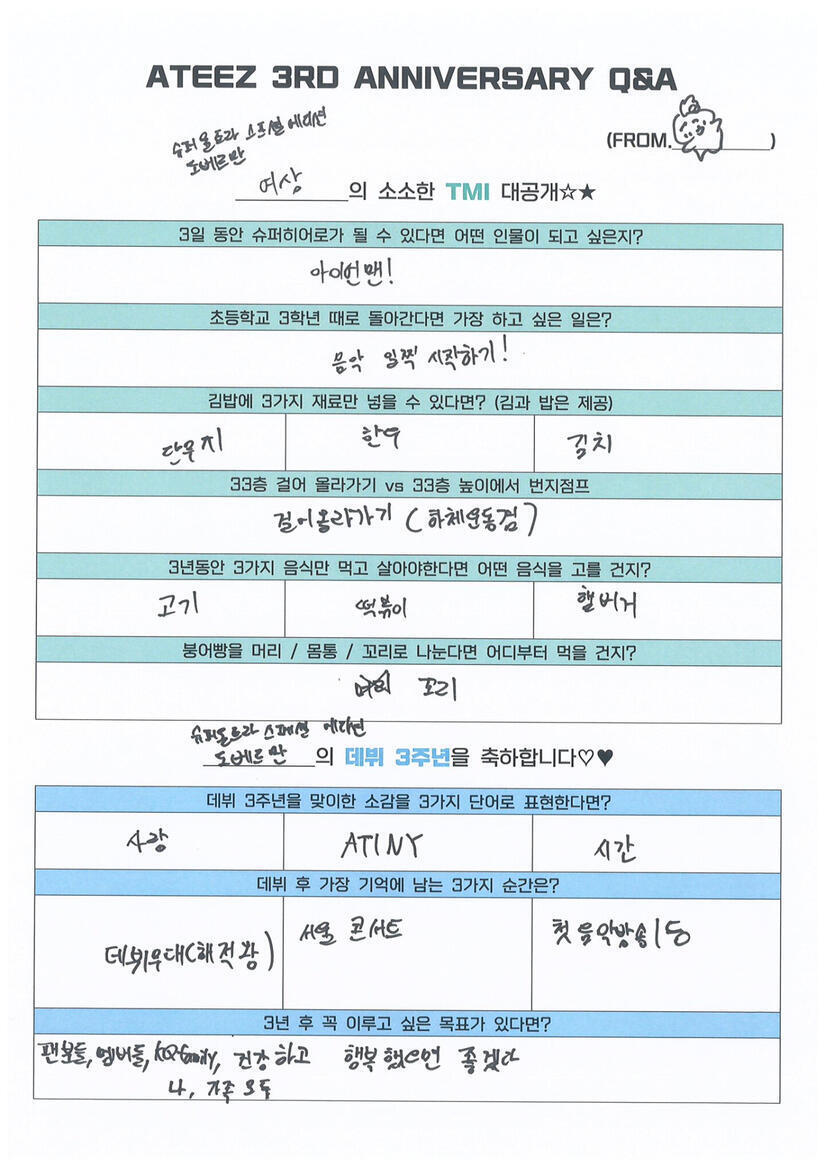 ATEEZ 3RD ANNIVERSARY Q&A
(FROM. )
슈퍼울트라 스프셜 에디션
도베르만
여상의 소소한 TMI 대공개☆★
3일 동안 슈퍼히어로가 될 수 있다면 어떤 인물이 되고 싶은지?
아이언맨!
초등학교 3학년 때로 돌아간다면 가장 하고 싶은 일은?
음악 일찍 시작하기!
김밥에 3가지 재료만 넣을 수 있다면? (김과 밥은 제공)
단무지 한우 김치
33층 걸어 올라가기 vs 33층 높이에서 번지점프
걸어올라가기 (하체운동겸)
3년동안 3가지 음식만 먹고 살아야한다면 어떤 음식을 고를 건지?
고기 떡볶이 햄버거
붕어빵을 머리 / 몸통 / 꼬리로 나눈다면 어디부터 먹을 건지?
꼬리
슈퍼울트라 스페셜 에디션
도베르만의 데뷔 3주년을 축하합니다♡♥
데뷔 3주년을 맞이한 소감을 3가지 단어로 표현한다면?
사랑 ATINY 시간
데뷔 후 가장 기억에 남는 3가지 순간은?
데뷔무대(해적왕) 서울 콘서트 첫 음악방송 1등
3년 후 꼭 이루고 싶은 목표가 있다면?
팬분들, 멤버들, KQ family, 건강하고 행복했으면 좋겠다
나, 가족 모두